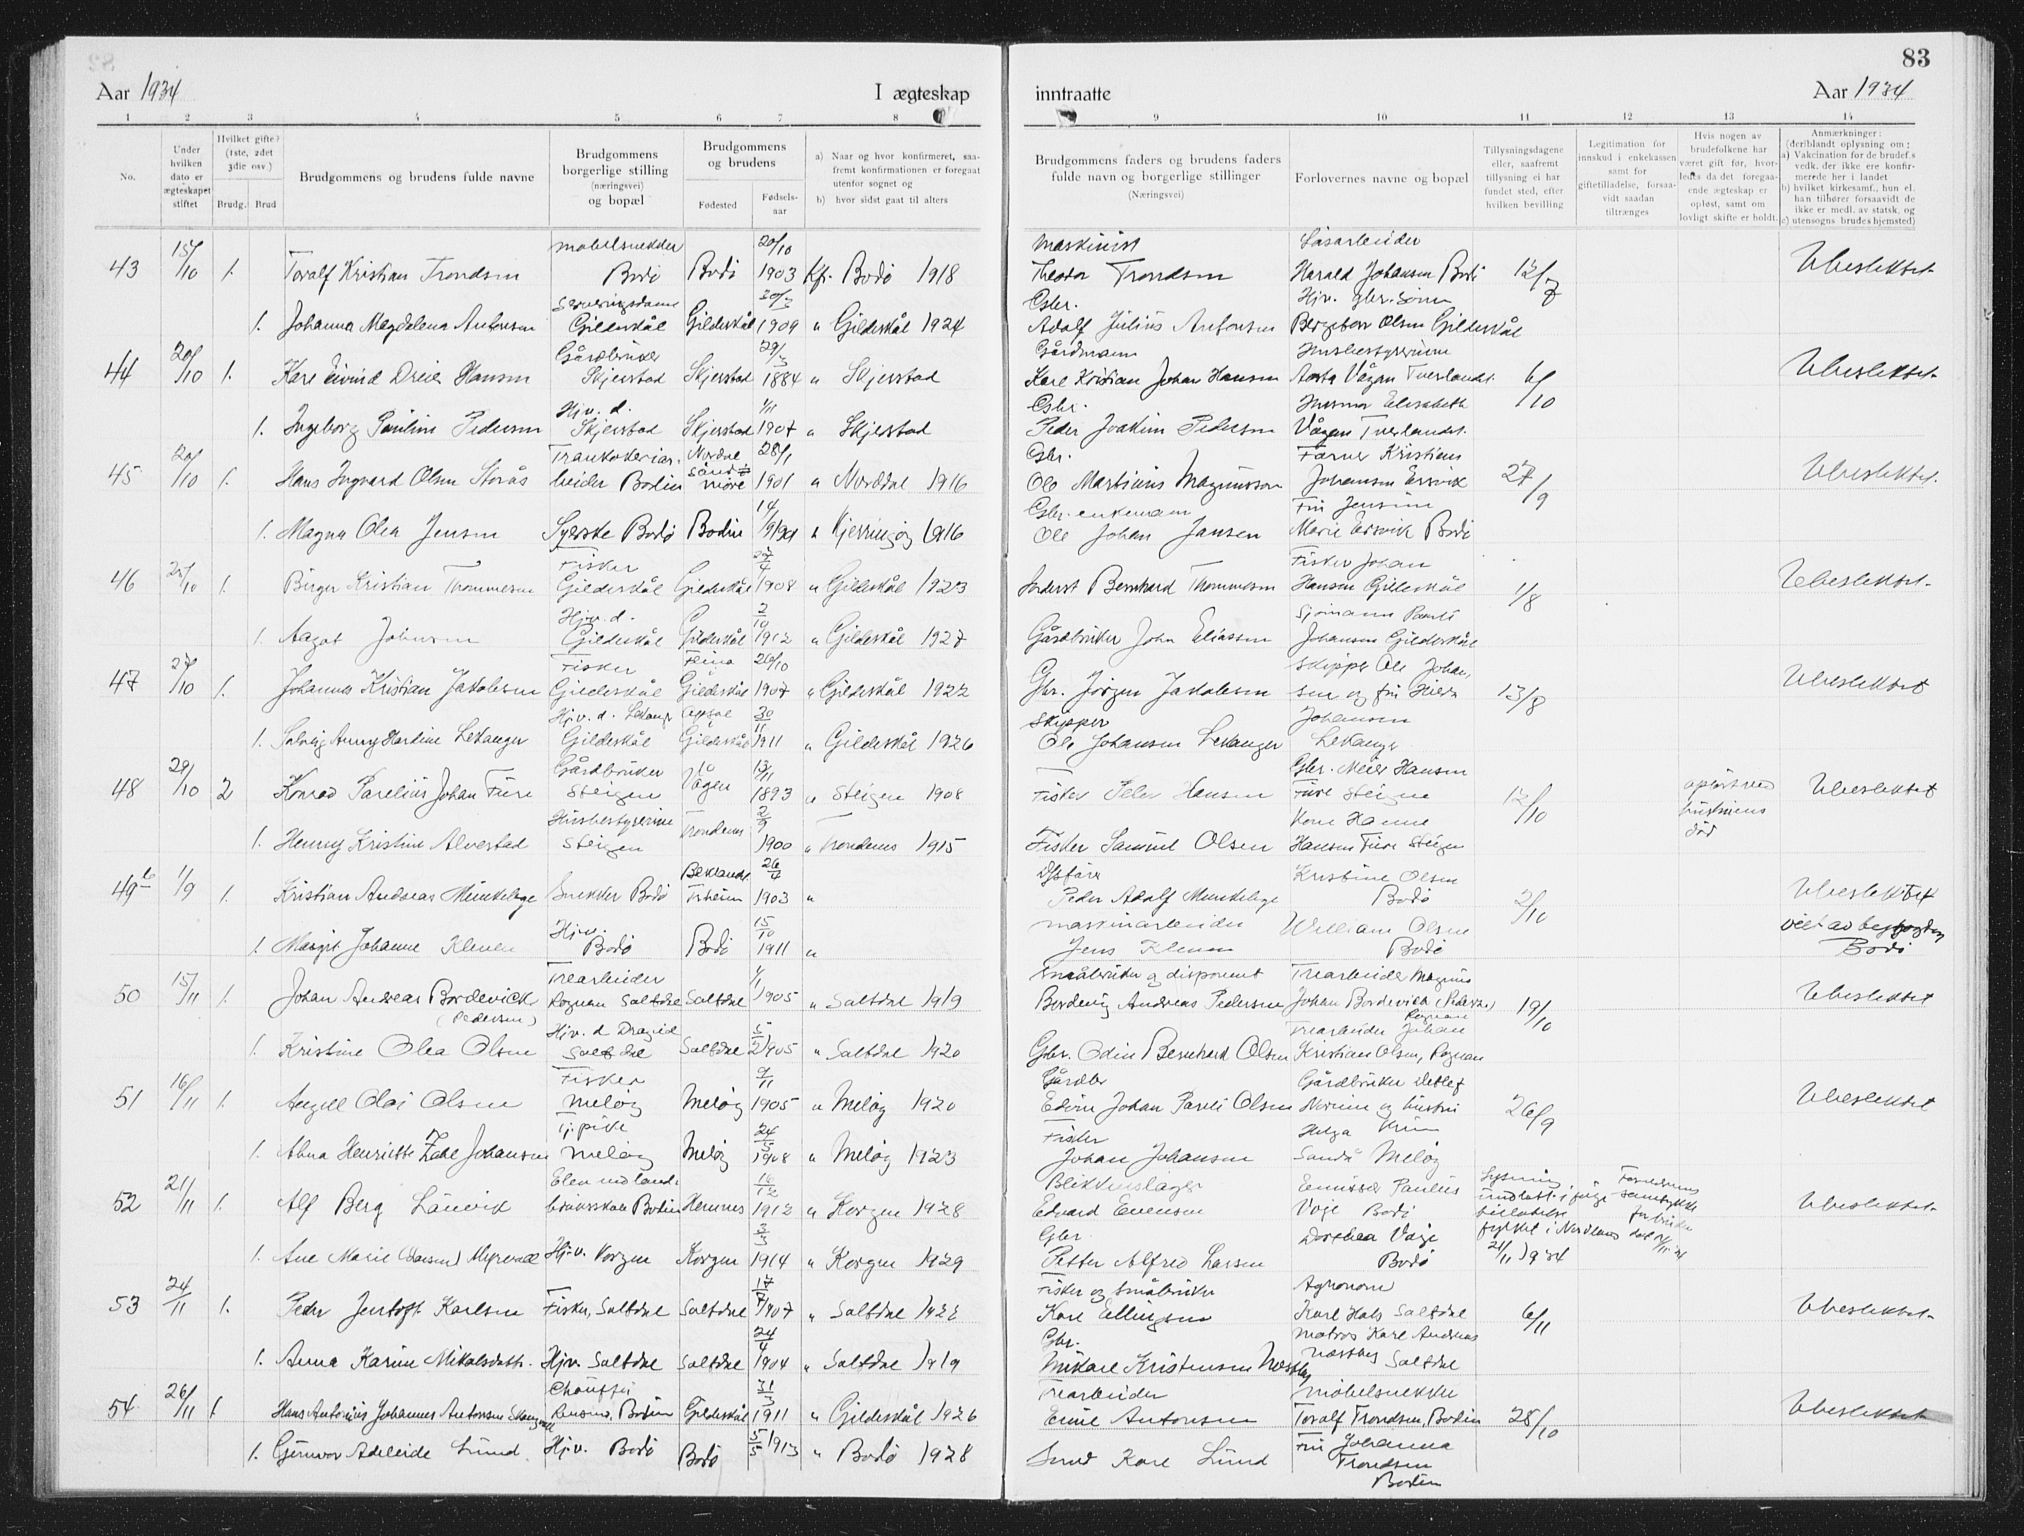 83
Aar 1934
I ægteskap
inntraatte
Aar 1934
1 2 3 4 5 6 7 8 9 10 11 12 13 14
No.
Under hvilken dato er ægteskapet stiftet
Hvilket gifte? (1ste, 2det 3die osv.)
Brudg. Brud
Brudgommens og brudens fulde navne
Brudgommens borgerlige stilling (næringsvei) og bopæl
Brudgommens og brudens
Fødested
Fødsels-aar
a) Naar og hvor konfirmeret, saa-fremt konfirmationen er foregaat utenfor sognet og
b) hvor sidst gaat til alters
Brudgommens faders og brudens faders fulde navn og borgerlige stillinger
(Næringsvei)
Forlovernes navne og bopæl
Tillysningsdagene eller, saafremt tillysning ei har fundet sted, efter hvilken bevilling
Legitimation for innskud i enkekassen samt for giftetilladelse, forsaa-vidt saadan tiltrænges
Hvis nogen av brudefolkene har været gift før, hvor-ledes da det foregaa-ende ægteskap er opløst, samt om lovligt skifte er holdt.
Anmærkninger: (deriblandt oplysning om:
a) Vakcination for de brudef.s vedk. der ikke ere konfir-merede her i landet
b) hvilket kirkesamf., hun el. han tilhører forsaavidt de ikke er medl. av statsk. og
c) utensogns brudes hjemsted)
43 15/10 1. Toralf Kristian Trondsen møbelsnekker Bodø Bodø 20/10 1903 Kfr. Bodø 1918 Maskinist Theodor Trondsen Harald Johansen Bodø 12/7 Ubeslektet
1. Johanna Magdalena Antonsen Serveringsdame Gildeskål Gildeskål 1909 " Gildeskål 1924 Gbr. Adolf Julius Antonsen Hjv. gbr. Bergitan Olsen Gildeskål
44 20/10 1. Kare Eivind Dreier Hansen Gårdbruker Skjerstad Skjerstad 29/3 1884 " Skjerstad Gårdmann Karl Kristian Johan Hansen Husbestyrerinne Aasta Vågan Tverlandet 6/10 Ubeslektet
1. Ingeborg Pauline Pedersen Hjv. d. Skjerstad Skjerstad 1/11 1907 " Skjerstad Gbr. Peder Joakim Pedersen Elisabeth Vågan Tverlandet.
45 20/10 1. Hans Ingvard Olsen Storås Trankokeriar-beider Bodin Norddal Søndmøre 28/1 1901 " Norddal 1916 Gbr. Ole Martinus Magnussen Kristians Johansen Ersvik 27/9 Ubeslektet.
1. Magna Olea Jensen Syerske Bodø Bodin " Kjerringøy 1916 Gbr. enkemann Ole Johan Jansen Fru Jensine Marie Ersvik Bodø
46 1. Birger Kristian Thommesen Fisker Gildeskål Gildeskål 27/4 1908 " Gildeskål 1923 Bernhard Thommesen Fisker Johan Hansen Gildeskål 1/8 Ubeslektet.
1. Aagot Johnsen Hjv. d. Gildeskål Gildeskål 2/10 1912 " Gildeskål 1927 Gårdbruker John Eliassen Sjømann Pareli Johansen Gildeskål
47 27/10 1. Johannes Kristian Jakobsen Fisker Gildeskål Fleina Gildeskål 26/10 1907 " Gildeskål 1922 Gbr. Jørgen Jakobsen Skipper Ole Johan-sen og fru Hilda 13/8 Ubeslektet
1. Solveig Anny Hartine Lekanger Hjv. d. Lekanger Gildeskål Gildeskål 30/11 1911 " Gildeskål 1926 Skipper Ole Johansen Lekanger Johansen Lekanger
48 29/10 2 Konrad Parelius Johan Fure Gårdbruker Steigen Vågen 13/11 1893 " Steigen 1908 Fisker Peder Hansen Gbr. Meier Hansen Fure Steigen 12/10 opløst ved hustruens død Ubeslektet
1. Henny Kristine Alvestad Husbestyrerinne Steigen Trondenes 2/9 1900 " Trondenes 1915 Fisker Samuel Olsen Kone Hanne Hansen Fure Steigen
49 1/9 1. Kristian Andreas Munkeberg Snekker Bodø 26/6 1903 " Peder Adolf Munkeberg Kristine Olsen Bodø 2/10 Ubeslektet
1. Margit Johanne Klevan Hjv. Bodø Bodø 15/10 1911 " maskinarbeider Jens Klevan William Olsen Bodø viet av Bodø
50 15/11 1. Johan Andreas Bordevick (Pedersen) Trearbeider Rognan Saltdal Saltdal 1/1 1905 " Saltdal 1919 Småbruker og disponent Bordevig Andreas Pedersen Trearbeider Magnus Johan Bordevick (Pedersen) Rognan 19/10 Ubeslektet
1. Kristine Olea Olsen Hjv. d Drageid Saltdal Saltdal 5/2 1905 " Saltdal 1920 Gbr. Odin Bernhard Olsen Trearbeider Johan Kristian Olsen, Rognan
51 16/11 1. Angell Olai Olsen Fisker Meløy Meløy 9/11 1905 " Meløy 1920 Gårdbr Edvin Johan Pareli Olsen Gårdbruker Detlef og hustru 26/9 Ubeslektet
1. Alma Henriette Zahl Johansen Tj.pike Meløy Meløy 24/5 1908 " Meløy 1923 Fisker Johan Johansen Helga Sandå Meløy
52 21/11 1. Alf Berg Lånvik Elev ved land-bruksskole Bodin Hemnes 16/12 1912 " Korgen 1928 Blikkenslager Edvard Evensen Emissær Paulius Våge Bodø Lysning undlatt i følge tillatelse fylket i Nordland 21/11 1934 Ubeslektet.
1. Ane Marie (Larsen) Myrvold Hjv. Korgen Korgen 3/3 1914 " Korgen 1929 Gbr. Petter Alfred Larsen Dorthea Våge Bodø
53 24/11 1. Peder Jentoft Karlsen Fisker, Saltdal Saltdal 17/7 1907 " Saltdal 1922 Fisker og småbruker Karl Ellingsen Agronom Karl Hals Saltdal 6/11 Ubeslektet.
1. Anna Karine Mikalsdatter Hjv. Saltdal Saltdal 24/4 1904 " Saltdal 1919 Gbr. Mikael Kristensen Næstby matros Karl Andreas Næstby Saltdal
54 26/11 1. Hans Antonius Johannes Antonsen Chauffør Rensåsen, Bodin Gildeskål 31/3 1911 " Gildeskål 1926 Trearbeider Emil Antonsen møbelsnekker Toralf Trondsen, Bodin 28/10 Ubeslektet
1. Gunvor Adeleide Lund Hjv. Bodø Bodø 5/5 1913 " Bodø 1928 Smed Karl Lund Fru Johanna Trondsen Bodin